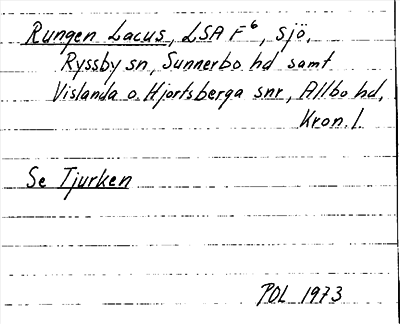 Rungen Lacus, LSA F⁶, sjö,
Ryssby sn, Sunnerbo hd samt
Vislanda o. Hjortsberga snr, Allbo hd,
Kron. l.
Se Tjurken
POL 1973